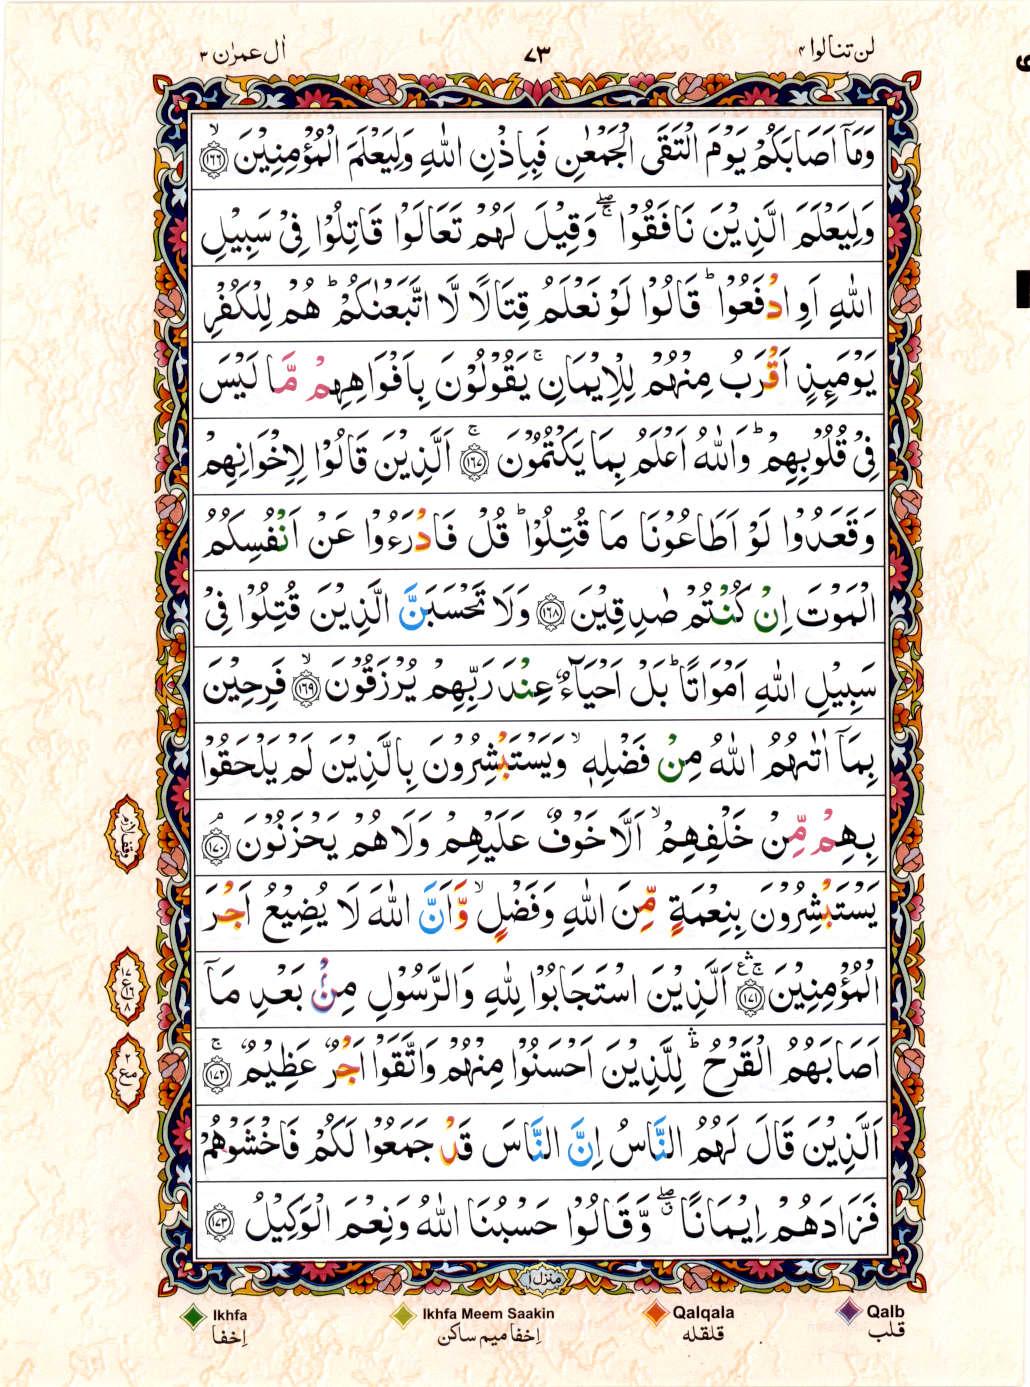 لن تنالوا ۴ ۷۳ اٰل عمرٰن ۳
وَمَاۤ اَصَابَكُمْ يَوْمَ الْتَقَى الْجَمْعٰنِ فَبِاِذْنِ اللّٰهِ وَلِيَعْلَمَ الْمُؤْمِنِيْنَ ۙ﴿۱۶۶﴾
وَلِيَعْلَمَ الَّذِيْنَ نَافَقُوْا ۖۚ وَقِيْلَ لَهُمْ تَعَالَوْا قَاتِلُوْا فِىْ سَبِيْلِ
اللّٰهِ اَوِ ادْفَعُوْا ؕ قَالُوْا لَوْ نَعْلَمُ قِتَالًا لَّا اتَّبَعْنٰكُمْ ؕ هُمْ لِلْكُفْرِ
يَوْمَئِذٍ اَقْرَبُ مِنْهُمْ لِلْاِيْمَانِ ۚ يَقُوْلُوْنَ بِاَفْوَاهِهِمْ مَّا لَيْسَ
فِىْ قُلُوْبِهِمْ ؕ وَاللّٰهُ اَعْلَمُ بِمَا يَكْتُمُوْنَ ۚ﴿۱۶۷﴾ اَلَّذِيْنَ قَالُوْا لِاِخْوَانِهِمْ
وَقَعَدُوْا لَوْ اَطَاعُوْنَا مَا قُتِلُوْا ؕ قُلْ فَادْرَءُوْا عَنْ اَنْفُسِكُمُ
الْمَوْتَ اِنْ كُنْتُمْ صٰدِقِيْنَ ﴿۱۶۸﴾ وَلَا تَحْسَبَنَّ الَّذِيْنَ قُتِلُوْا فِىْ
سَبِيْلِ اللّٰهِ اَمْوَاتًا ؕ بَلْ اَحْيَآءٌ عِنْدَ رَبِّهِمْ يُرْزَقُوْنَ ۙ﴿۱۶۹﴾ فَرِحِيْنَ
بِمَاۤ اٰتٰىهُمُ اللّٰهُ مِنْ فَضْلِهٖ ۙ وَيَسْتَبْشِرُوْنَ بِالَّذِيْنَ لَمْ يَلْحَقُوْا
بِهِمْ مِّنْ خَلْفِهِمْ ۙ اَلَّا خَوْفٌ عَلَيْهِمْ وَلَا هُمْ يَحْزَنُوْنَ ۘ﴿۱۷۰﴾
يَسْتَبْشِرُوْنَ بِنِعْمَةٍ مِّنَ اللّٰهِ وَفَضْلٍ ۙ وَّاَنَّ اللّٰهَ لَا يُضِيْعُ اَجْرَ
الْمُؤْمِنِيْنَ ۛۚ﴿۱۷۱﴾ اَلَّذِيْنَ اسْتَجَابُوْا لِلّٰهِ وَالرَّسُوْلِ مِنْۢ بَعْدِ مَاۤ
اَصَابَهُمُ الْقَرْحُ ۛؕ لِلَّذِيْنَ اَحْسَنُوْا مِنْهُمْ وَاتَّقَوْا اَجْرٌ عَظِيْمٌ ۚ﴿۱۷۲﴾
اَلَّذِيْنَ قَالَ لَهُمُ النَّاسُ اِنَّ النَّاسَ قَدْ جَمَعُوْا لَكُمْ فَاخْشَوْهُمْ
فَزَادَهُمْ اِيْمَانًا ۖۗ وَّقَالُوْا حَسْبُنَا اللّٰهُ وَنِعْمَ الْوَكِيْلُ ﴿۱۷۳﴾
منزل ۱
Ikhfa Ikhfa Meem Saakin Qalqala Qalb
اِخفا اِخفا میم ساکن قلقله قلب